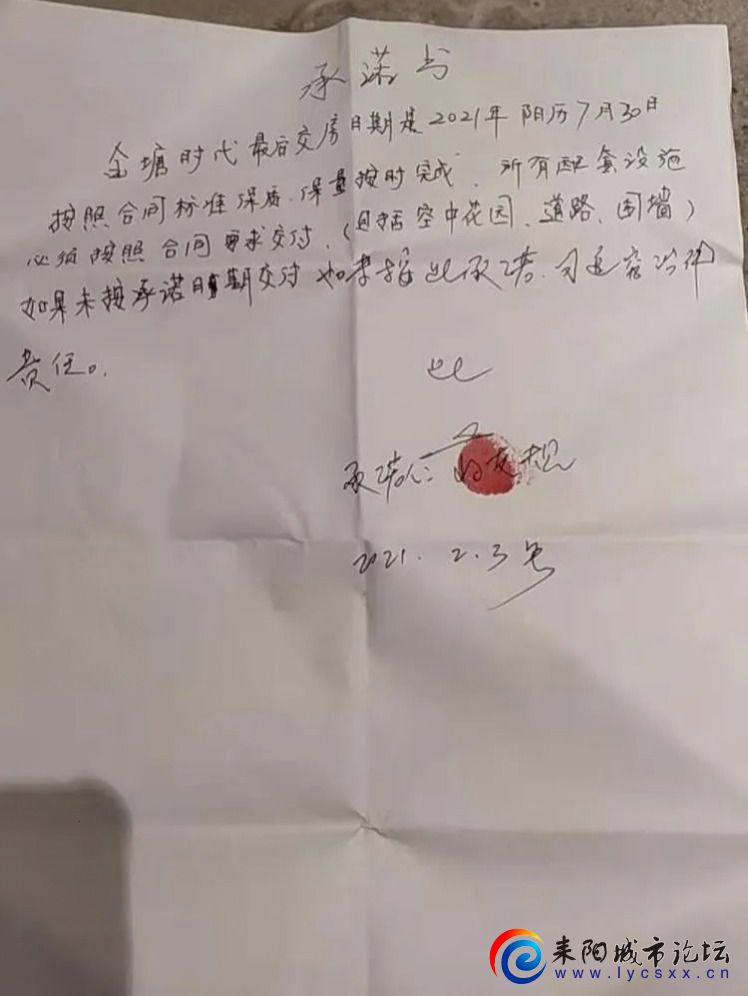 承诺书
金塘时代最后交房日期是2021年阳历7月30日
按照合同标准保质.保量按时完成.所有配套设施
必须按照合同要求交付.(包括空中花园、道路、围墙)
如果未按承诺日期交付 如未按此承诺.
责任。
此
承诺人:
2021.2.3号
耒阳城市论坛
www.lycsxx.cn